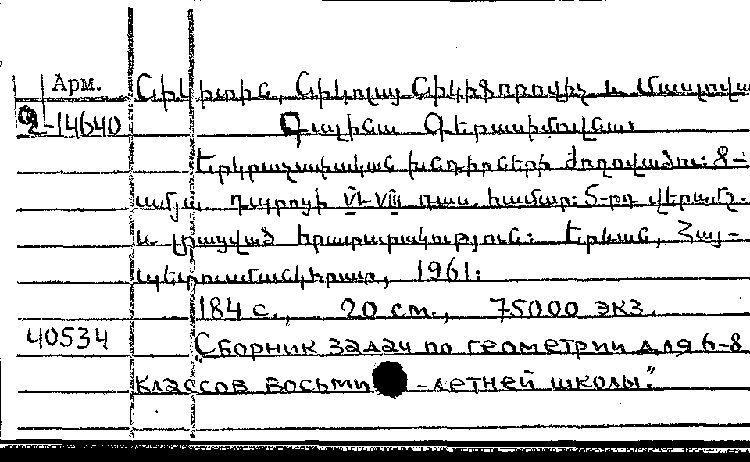 Арм.
Նիկիտին, Նիկոլայ Նիկիֆորովիչ և Մասլովա
2-14640
Գալինա Գերասիմովնա:
Երկրաչափական խնդիրների ժողովածու: 8-
ամյա դպրոցի VI-VIII դաս. համար: 5-րդ վերամշ.
և լրացված հրատարակություն: Երևան, Հայ-
պետուսմանկհրատ, 1961:
184 с., 20 см., 75000 экз.
40534
"Сборник задач по геометрии для 6-8
классов восьми-летней школы".